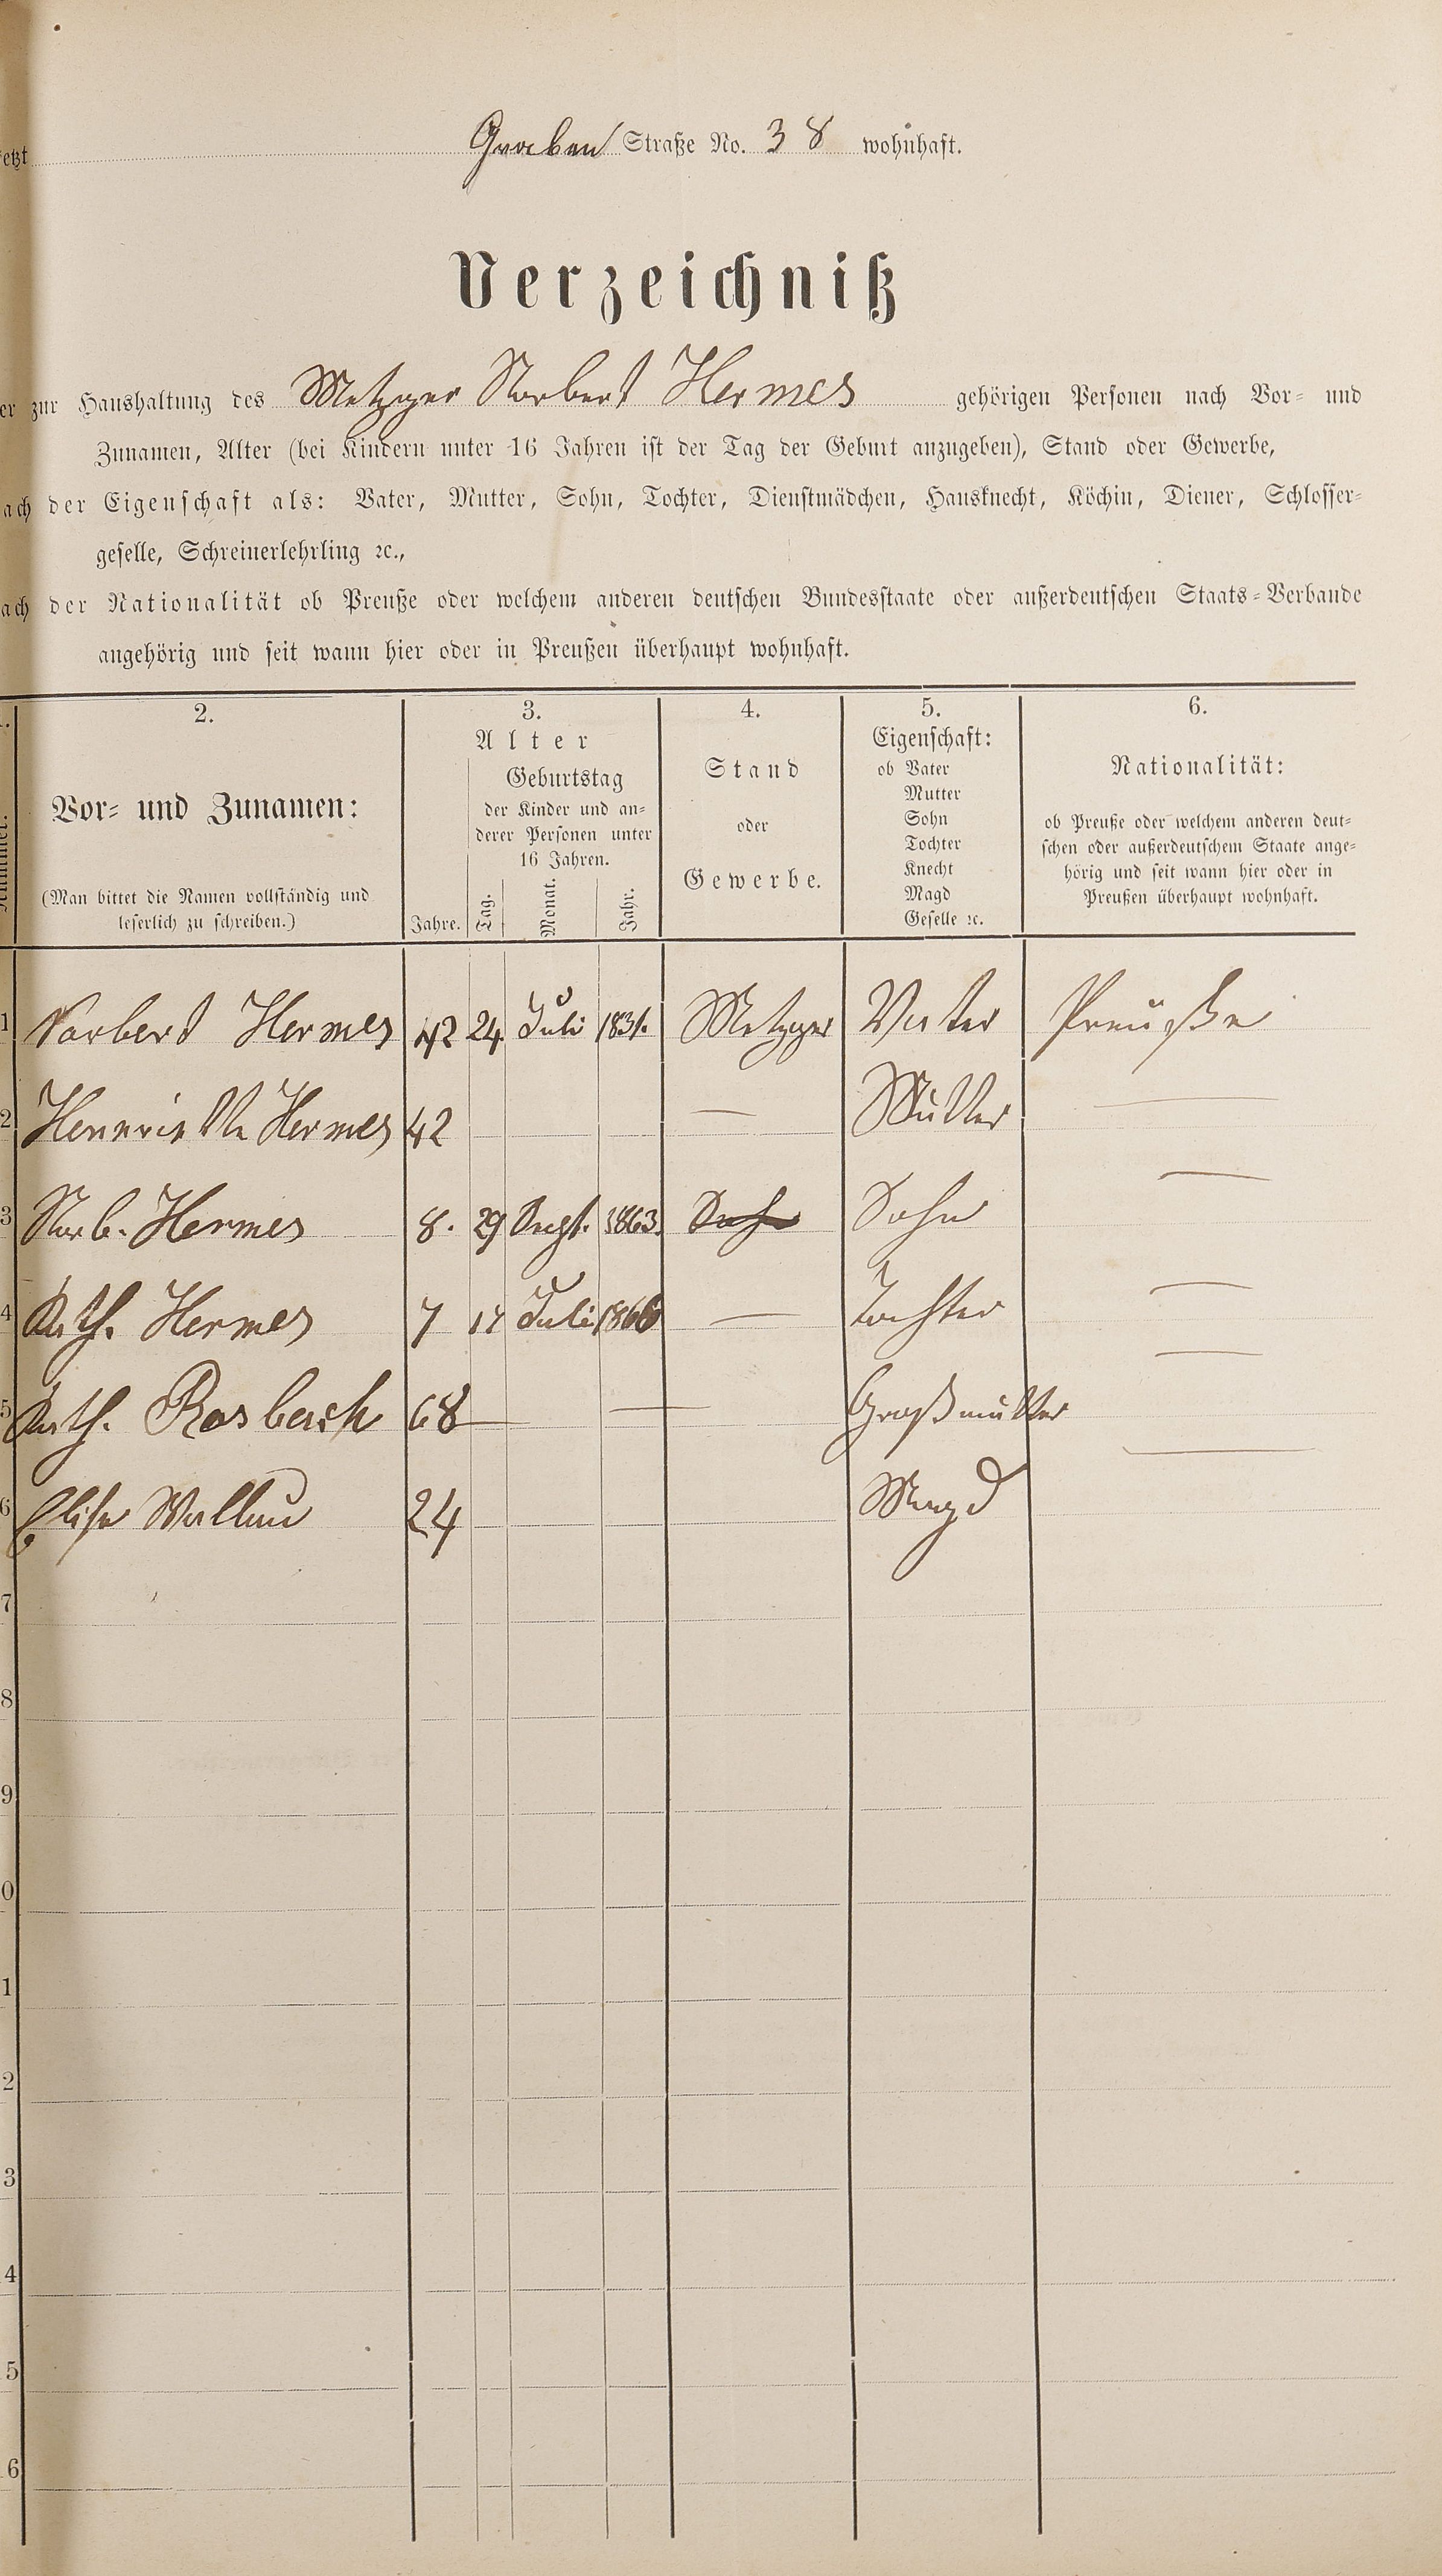 etzt Graben Straße No. 38 wohnhaft.
Verzeichniß
er zur Haushaltung des Metzger Norbert Hermes gehörigen Personen nach Vor- und
Zunamen, Alter (bei Kindern unter 16 Jahren ist der Tag der Geburt anzugeben), Stand oder Gewerbe,
ach der Eigenschaft als: Vater, Mutter, Sohn, Tochter, Dienstmädchen, Hausknecht, Köchin, Diener, Schlosser-
geselle, Schreinerlehrling ꝛc.,
ach der Nationalität ob Preuße oder welchem anderen deutschen Bundesstaate oder außerdeutschen Staats-Verbande
angehörig und seit wann hier oder in Preußen überhaupt wohnhaft.
2.
Vor- und Zunamen:
(Man bittet die Namen vollständig und
leserlich zu schreiben.)
3.
Alter
Jahre.
Geburtstag
der Kinder und an-
derer Personen unter
16 Jahren.
Tag. Monat. Jahr.
4.
Stand
oder
Gewerbe.
5.
Eigenschaft:
ob Vater
Mutter
Sohn
Tochter
Knecht
Magd
Geselle ꝛc.
6.
Nationalität:
ob Preuße oder welchem anderen deut-
schen oder außerdeutschem Staate ange-
hörig und seit wann hier oder in
Preußen überhaupt wohnhaft.
1 Norbert Hermes 42 24. Juli 1831. Metzger Vater Preuße
2 Henriette Hermes 42 — Mutter —
3 Norb. Hermes 8. 29 Sept. 1863. Sohn Sohn —
4 Kath. Hermes 7 14 Juli 1866 — Tochter —
5 Kath. Rosbach 68 — — Großmutter —
6 Elise Wallau 24 Magd —
7
8
9
0
1
2
3
4
5
6